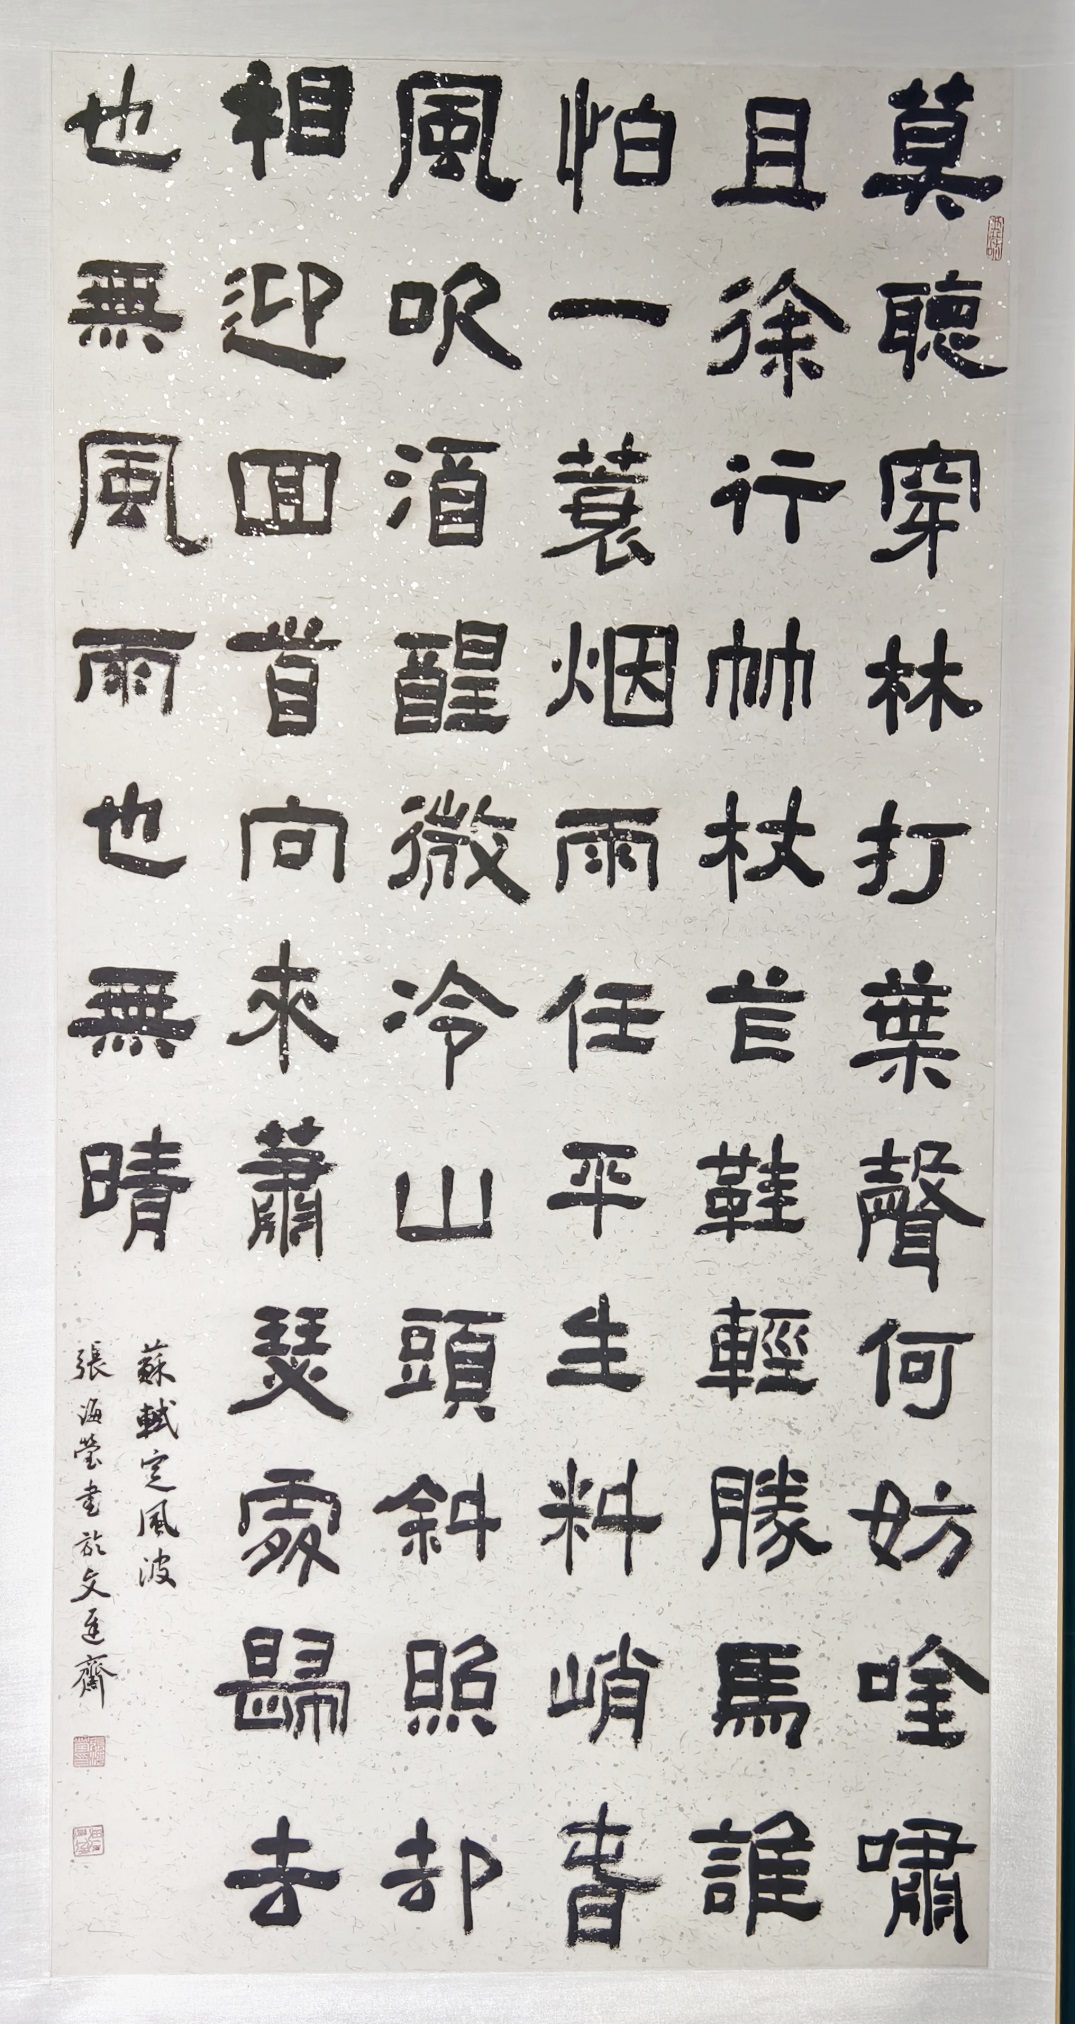 莫聽穿林打葉聲何妨唫嘯
且徐行竹杖芒鞋輕勝馬誰
怕一蓑烟雨任平生料峭春
風吹酒醒微冷山頭斜照却
相迎回首向來蕭瑟處歸去
也無風雨也無晴
蘇軾定風波
張海瑩書於文齋